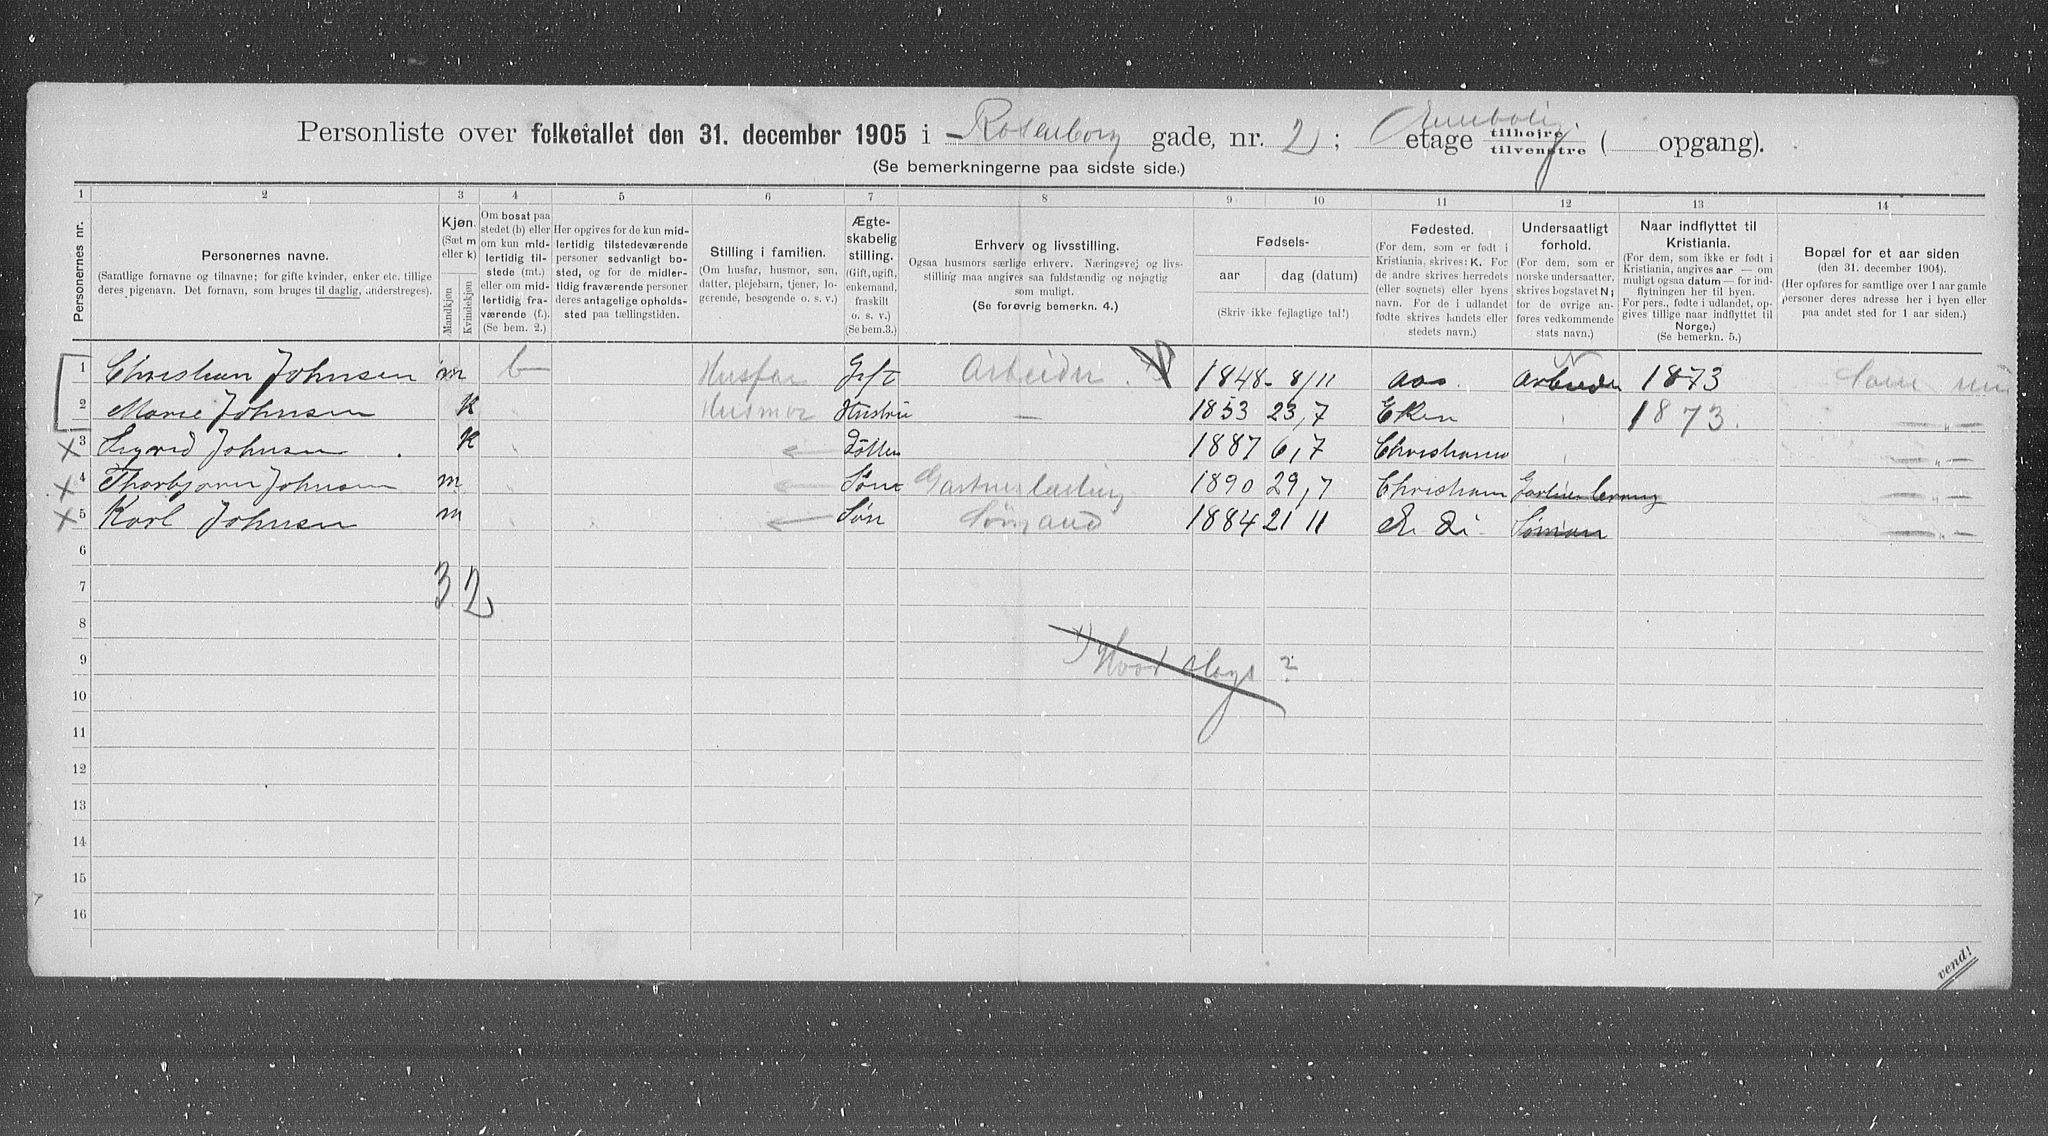 Personliste over folketallet den 31. december 1905 i Rosenborg gade, nr. 2; etage tilhøjre tilvenstre ( opgang).
(Se bemerkningerne paa sidste side.)
1 2 3 4 5 6 7 8 9 10 11 12 13 14
Personernes nr.
Personernes navne.
(Samtlige fornavne og tilnavne; for gifte kvinder, enker etc. tillige
deres pigenavn. Det fornavn, som bruges til daglig, understreges).
Kjøn.
(Sæt m
eller k)
Mandkjøn
Kvindekjøn
Om bosat paa
stedet (b) eller
om kun mid-
lertidig tilste-
stede (mt.)
eller om mid-
lertidig fra-
værende (f.).
(Se bem. 2.)
Her opgives for de kun mid-
lertidig tilstedeværende
personer sedvanligt bo-
sted, og for de midler-
tidig fraværende personer
deres antagelige opholds-
sted paa tællingstiden.
Stilling i familien.
(Om husfar, husmor, søn,
datter, plejebarn, tjener, lo-
gerende, besøgende o. s. v.)
Ægte-
skabelig
stilling.
(Gift, ugift,
enkemand,
fraskilt
o. s. v.)
(Se bem.3.)
Erhverv og livsstilling.
Ogsaa husmors særlige erhverv. Næringsvej og livs-
stilling maa angives saa fuldstændig og nøjagtig
som muligt.
(Se forøvrig bemerkn. 4.)
Fødsels-
aar
dag (datum)
(Skriv ikke fejlagtige tal!)
Fødested.
(For dem, som er født i
Kristiania, skrives: K. For
de andre skrives herredets
(eller sognets) eller byens
navn. For de i udlandet
fødte skrives landets eller
stedets navn.)
Undersaatligt
forhold.
(For dem, som er
norske undersaatter,
skrives bogstavet N;
for de øvrige an-
føres vedkommende
stats navn.)
Naar indflyttet til
Kristiania.
(For dem, som ikke er født i
Kristiania, angives aar — om
muligt ogsaa datum — for ind-
flytningen her til byen.
For pers., fødte i udlandet, op-
gives tillige naar indflyttet til
Norge.)
(Se bemerkn. 5.)
Bopæl for et aar siden
(den 31. december 1904).
(Her opføres for samtlige over 1 aar gamle
personer deres adresse her i byen eller
paa andet sted for 1 aar siden.)
1 Christian Johnsen m b Husfar Gift Arbeider 1848 - 8/11 Aas Arbeider N 1873 Som
2 Marie Johnsen K Husmor Hustru — 1853 23,7 Eken 1873. — „ —
x 3 Sigrid Johnsen K 1887 6,7 Christiania — „ —
x 4 Thorbjørn Johnsen m Søn 1890 29,7 — „ —
x 5 Karl Johnsen m Søn Sømand 1884 21 11 Søman — „ —
6
7
3 2
8
9
x) Hvad slags?
10
11
12
13
14
15
16
vend!